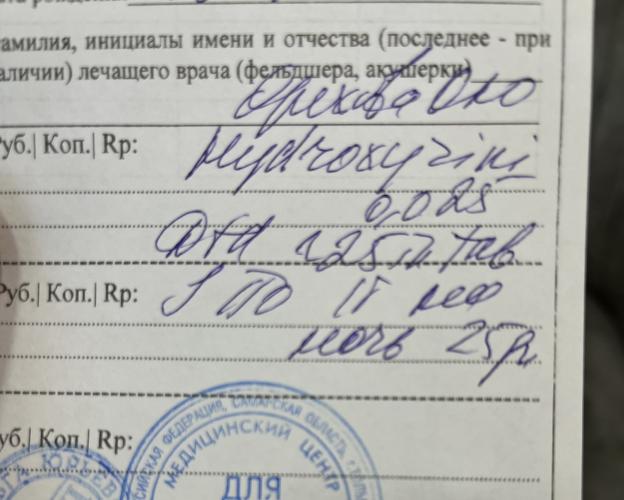 амилия, инициалы имени и отчества (последнее - при
аличии) лечащего врача (фельдшера, акушерки)
Орехова О
Руб.| Коп.| Rp: Hydroxyzini
0,025
Dtd 25 tab
Руб.| Коп.| Rp: S По 1т на
ночь 25
уб.| Коп.| Rp:
СИЙСКАЯ ФЕДЕРАЦИЯ, САМАРСКАЯ ОБЛАСТЬ
МЕДИЦИНСКИЙ ЦЕНТР
ДЛЯ